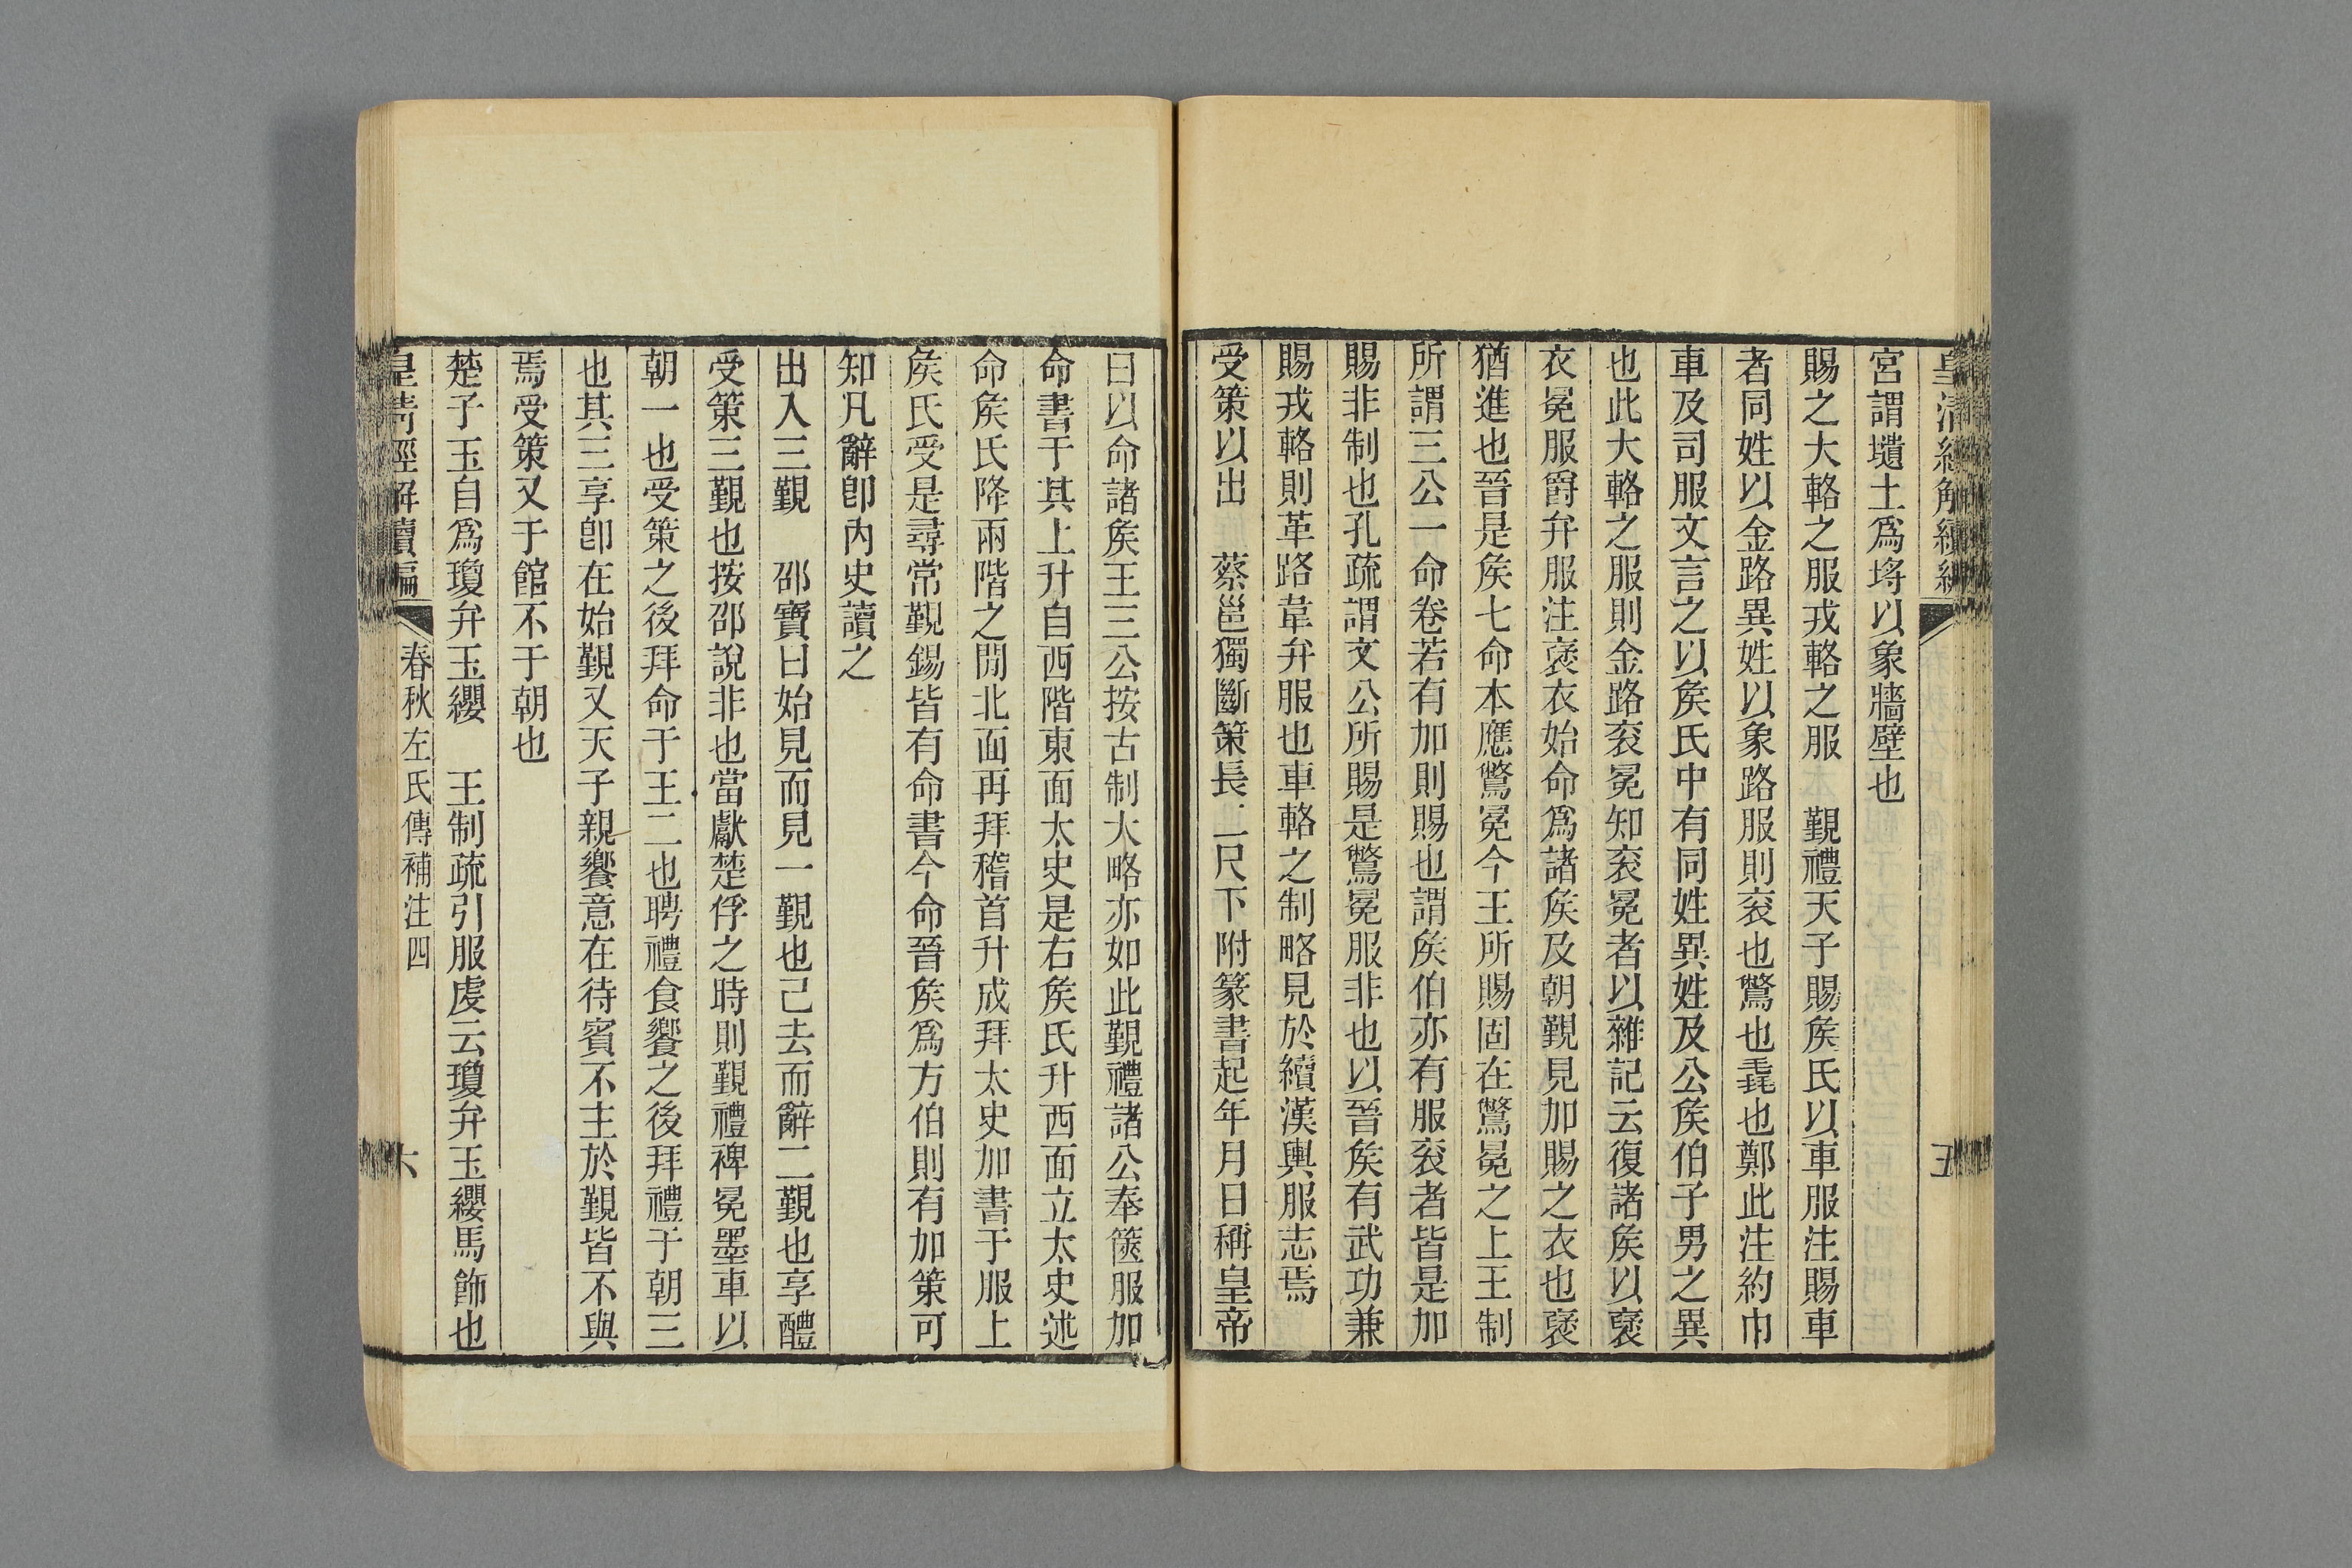 皇清經解續編
五
宮謂壝土爲埒以象牆壁也
賜之大輅之服戎輅之服　覲禮天子賜矦氏以車服注賜車
者同姓以金路異姓以象路服則衮也鷩也毳也鄭此注約巾
車及司服文言之以矦氏中有同姓異姓及公矦伯子男之異
也此大輅之服則金路衮冕知衮冕者以雜記云復諸矦以襃
衣冕服爵弁服注襃衣始命爲諸矦及朝覲見加賜之衣也襃
猶進也晉是矦七命本應鷩冕今王所賜固在鷩冕之上王制
所謂三公一命卷若有加則賜也謂矦伯亦有服衮者皆是加
賜非制也孔疏謂文公所賜是鷩冕服非也以晉矦有武功兼
賜戎輅則革路韋弁服也車輅之制略見於續漢輿服志焉
受策以出　蔡邕獨斷策長二尺下附篆書起年月日稱皇帝
曰以命諸矦王三公按古制大略亦如此覲禮諸公奉篋服加
命書于其上升自西階東面太史是右矦氏升西面立太史述
命矦氏降兩階之閒北面再拜稽首升成拜太史加書于服上
矦氏受是尋常覲錫皆有命書今命晉矦爲方伯則有加策可
知凡辭卽內史讀之
出入三覲　邵寶曰始見而見一覲也己去而辭二覲也享醴
受策三覲也按邵說非也當獻楚俘之時則覲禮裨冕墨車以
朝一也受策之後拜命于王二也聘禮食饗之後拜禮于朝三
也其三享卽在始覲又天子親饗意在待賓不主於覲皆不與
焉受策又于館不于朝也
楚子玉自爲瓊弁玉纓　王制疏引服虔云瓊弁玉纓馬飾也
皇清經解續編
春秋左氏傳補注四
六